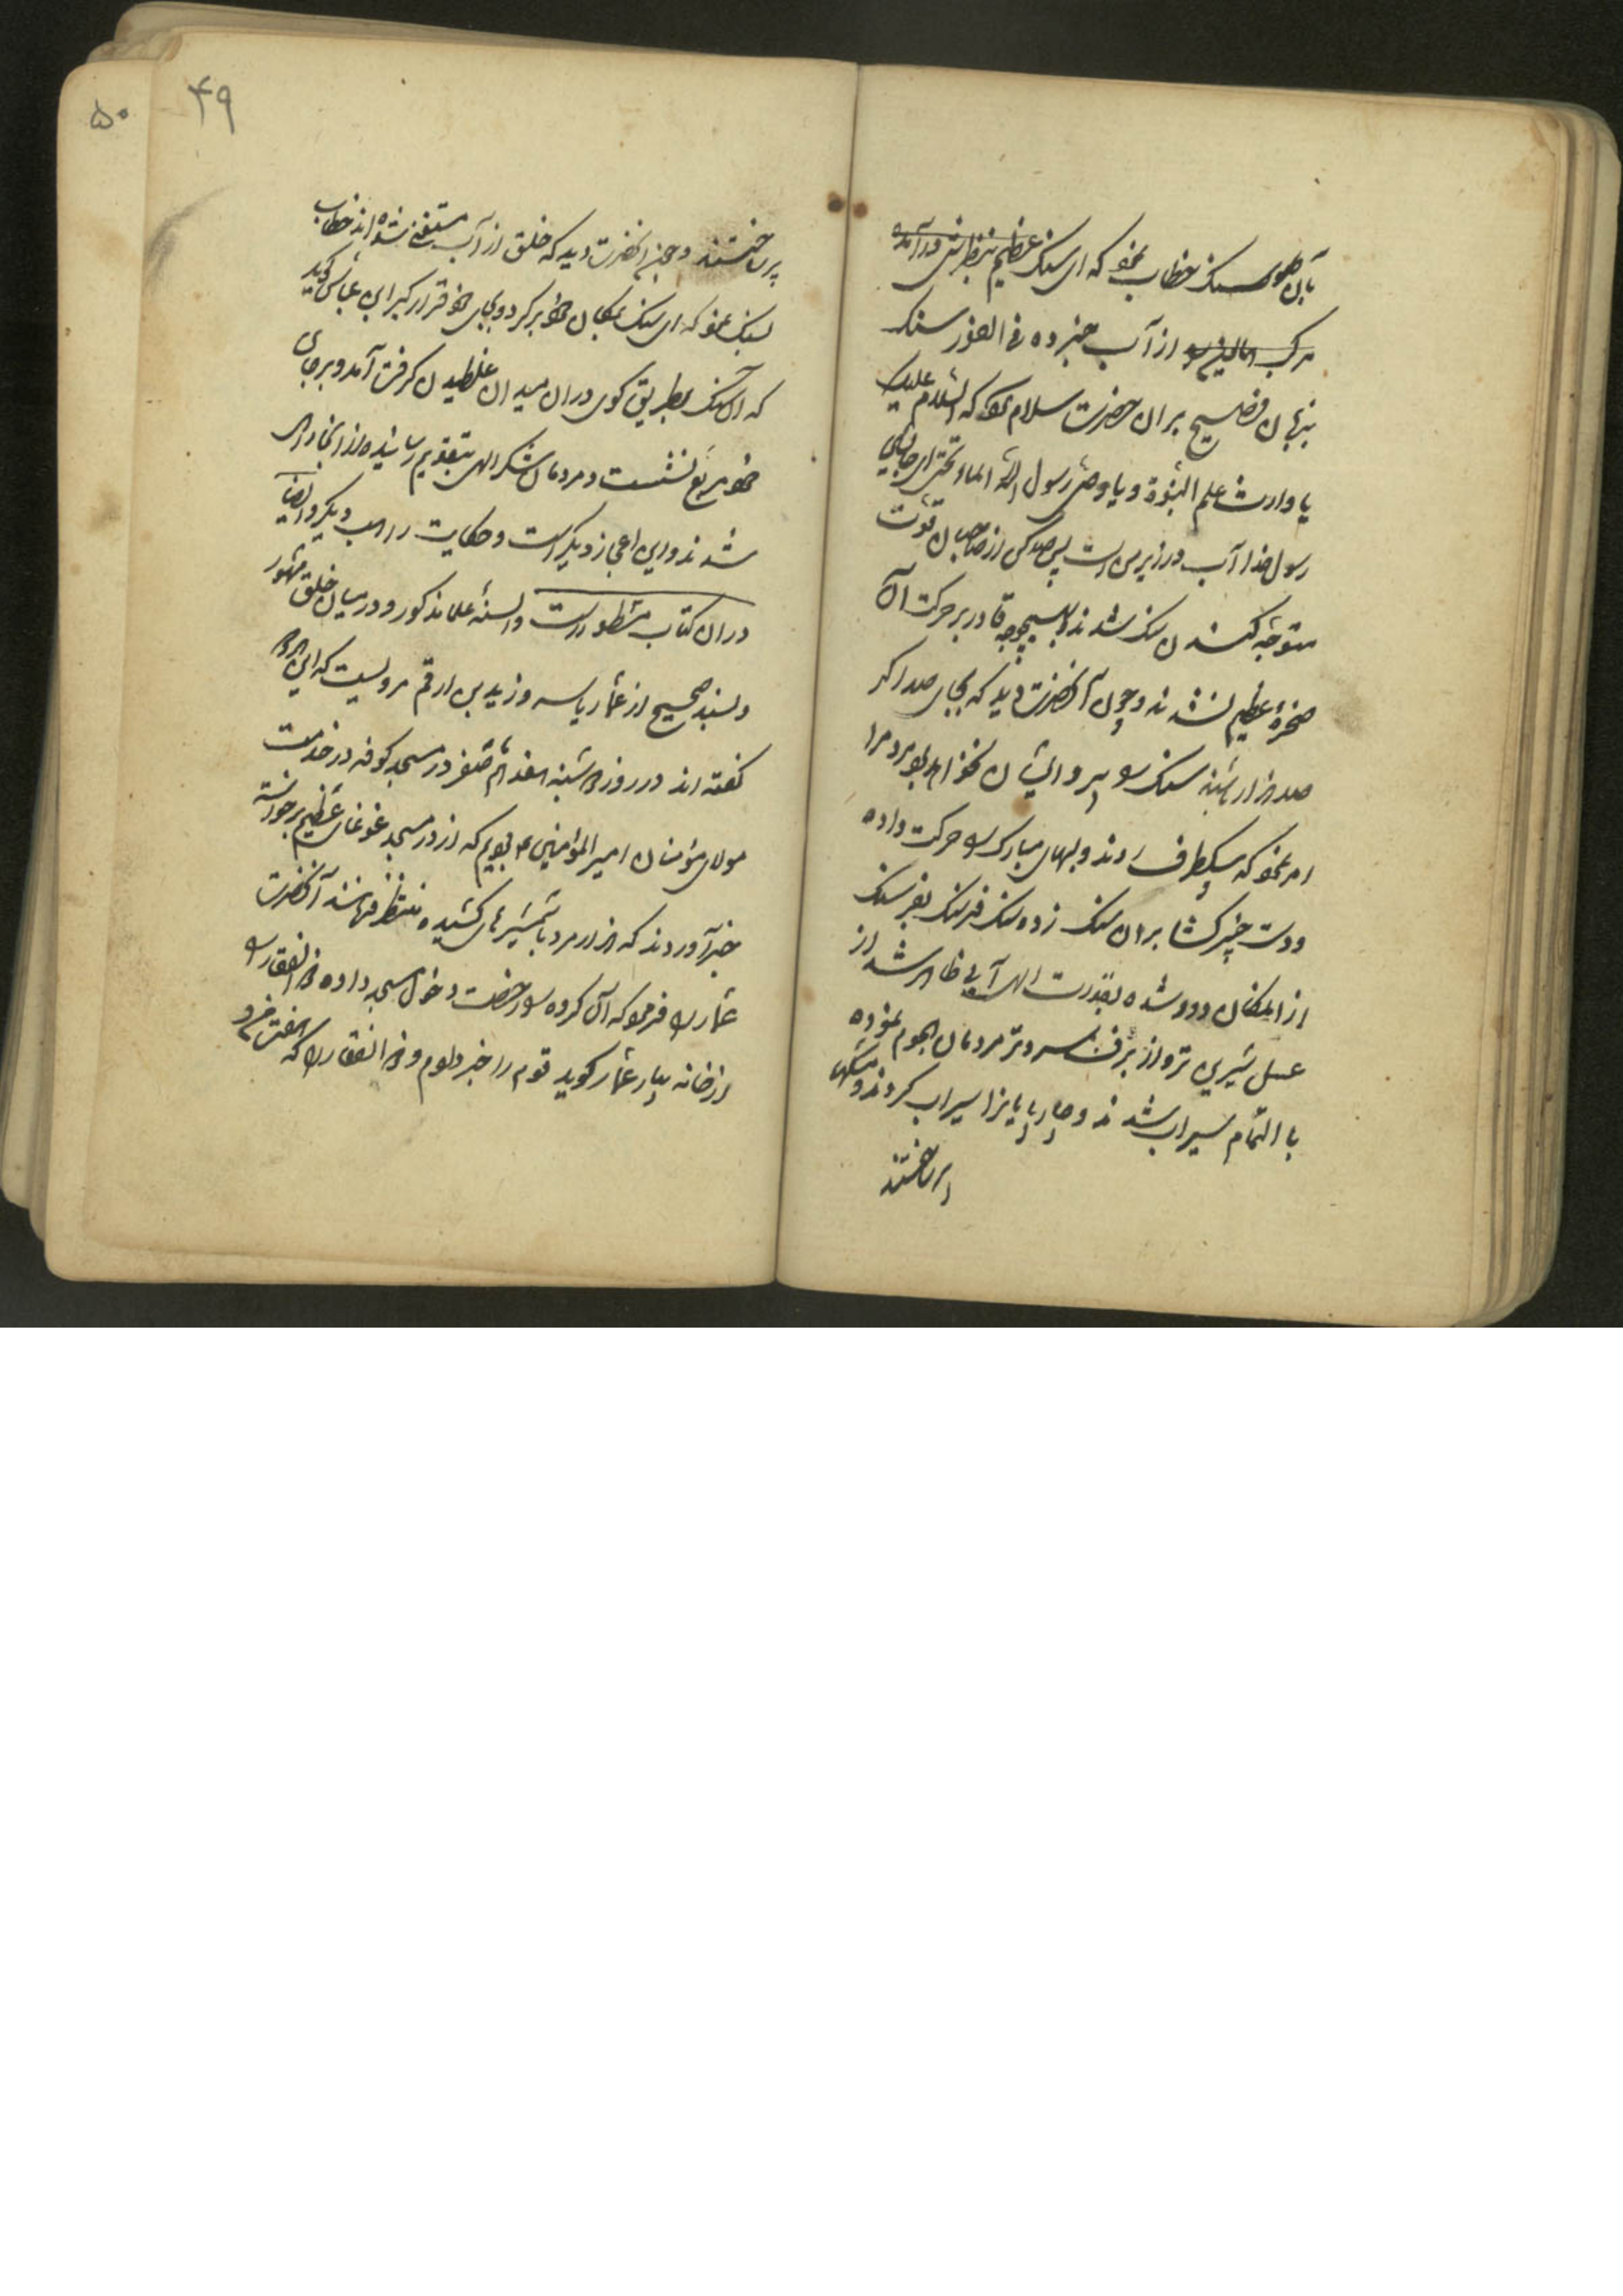 بآن سنک خطاب نمود که ای سنک عظیم
از آب خبر ده فی الفور سنک
بزبان فصیح بران حضرت سلام کرد که السلام علیک
یا وارث علم النبوة و یا وصی رسول الله الماء تحتی ای جانشین
رسول خدا آب در زیر من است پس صد کس از صاحبان قوت
متوجه کندن سنک شدند بهیچوجه قادر بر حرکت آن
صخرهٔ عظیم نشدند و چون آنحضرت دید که بجای صد اکر
صد هزار باشند سنک
امر نمود که بیکطرف روند و لبهای مبارک را حرکت داده
دست خیبر کشا بران سنک زده سنک فرسنک بفرسنک
از انمکان دور شده بقدرت الهی آبی ظاهر شد از
عسل شیرین تر و از برف سردتر مردمان هجوم نموده
با التمام سیراب شدند و چارپایانرا سیراب کردند و مشکها
پر ساختند
پر ساختند و چون آنحضرت دید که خلق از آب مستغنی شده اند خطاب
بسنک نمود که ای سنک بمکان خود برکرد و بجای خود قرار کیر ابن عباس کوید
که آن سنک بطریق کوی دران میدان غلطیدن کرفت آمد و برجای
خود مربع نشست و مردمان شکر الهی بتقدیم رسانیده از انجا راهی
شدند و این اعجاز دیکر است و حکایت راهب دیکر و ایضا
دران کتاب مسطور است و السنهٔ علما مذکور و در میان خلق مشهور
و بسند صحیح از عمار یاسر و زید بن ارقم مرویست که این هردو
کفته اند در روز دوشنبه هفدهم صفر در مسجد کوفه در خدمت
مولای مؤمنان امیر المؤمنین ع بودیم که از در مسجد غوغای عظیم برخواسته
خبر آوردند که هزار مرد با شمشیرهای کشیده منتظر فرمانند آنحضرت
عمار را فرمود که آن کروه را رخصت دخول مسجد داده ذو الفقار را
از خانه بیار عمار کوید قوم را خبر دادم و ذو الفقار را که